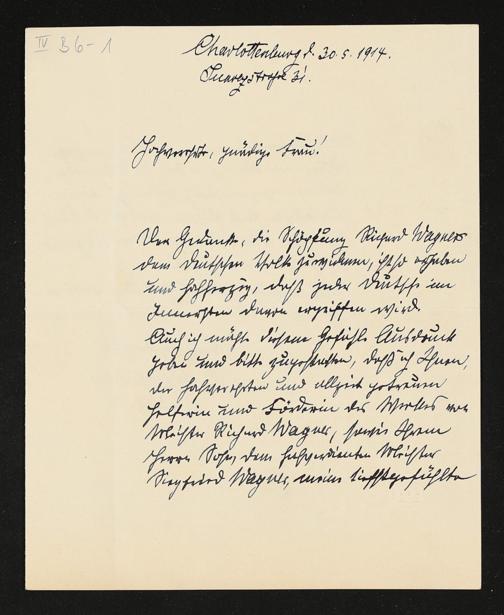 IV B6-1
Charlottenburg d. 30.5.1914.
Suarezstraße 31.
Hochverehrte, gnädige Frau!
Der Gedanke, die Schöpfung Richard Wagners
dem deutschen Volke zu widmen, ist so erhaben
und hochherzig, daß jeder Deutsche im
Innersten davon ergriffen wird.
Auch ich möchte diesem Gefühle Ausdruck
geben und bitte zugestatten, daß ich Ihnen,
der hochverehrten und allzeit getreuen
Helferin und Förderin des Werkes von
Meister Richard Wagner, sowie Ihrem
Herrn Sohn, dem hochverdienten Meister
Siegfried Wagner, meine tiefstgefühlte